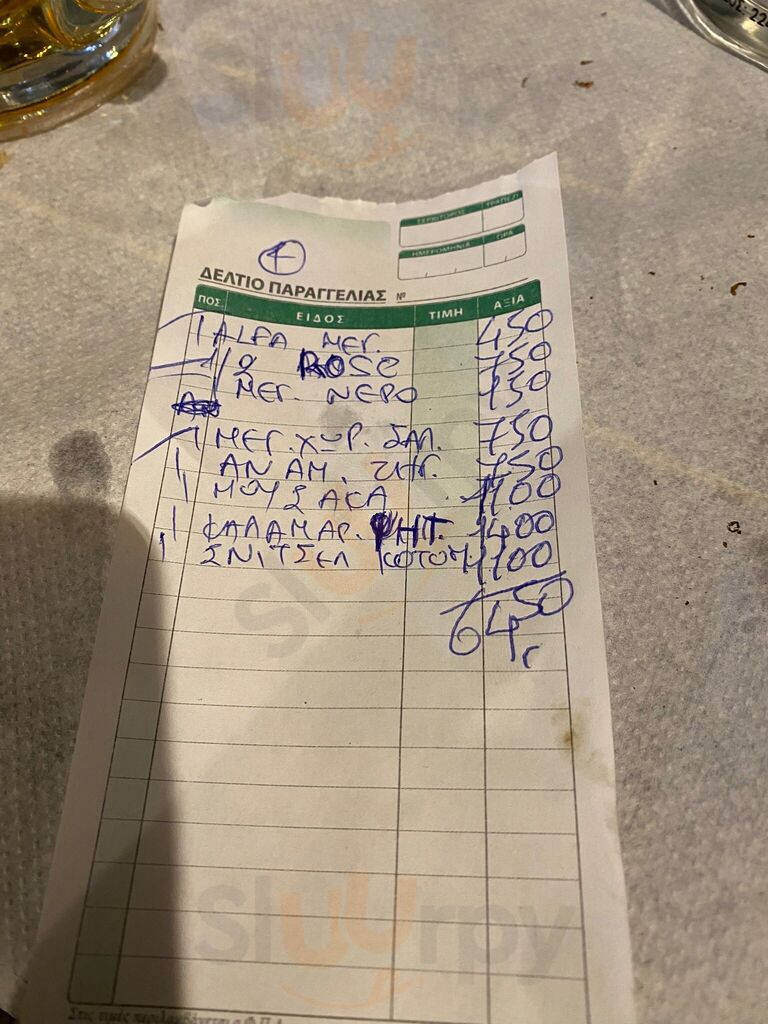 ΣΕΡΒΙΤΟΡΟΣ ΤΡΑΠΕΖΙ
ΗΜΕΡΟΜΗ�νΙΑ ΩΡΑ
ΔΕΛΤΙΟ ΠΑΡΑΓΓΕΛΙΑΣ №
ΠΟΣ. ΕΙΔΟΣ ΤΙΜΗ ΑΞΙΑ
1 ALFA ΜΕΓ. 450
1/2 ROSE 750
ΜΕΓ. ΝΕΡΟ 150
1 ΜΕΓ. ΧΩΡ. ΣΑΛ. 750
1 ΑΝΑΜ. 750
1 ΜΟΥΣΑΚΑ 1100
1 ΚΑΛΑΜΑΡ. ΨΗΤ. 1400
1 ΣΝΙΤΣΕΛ ΚΟΤΟΠ 1100
6450
Στις τιμές περιλαμβάνεται ο Φ.Π.Α.
Sluurpy
Sluurpy
Sluurpy